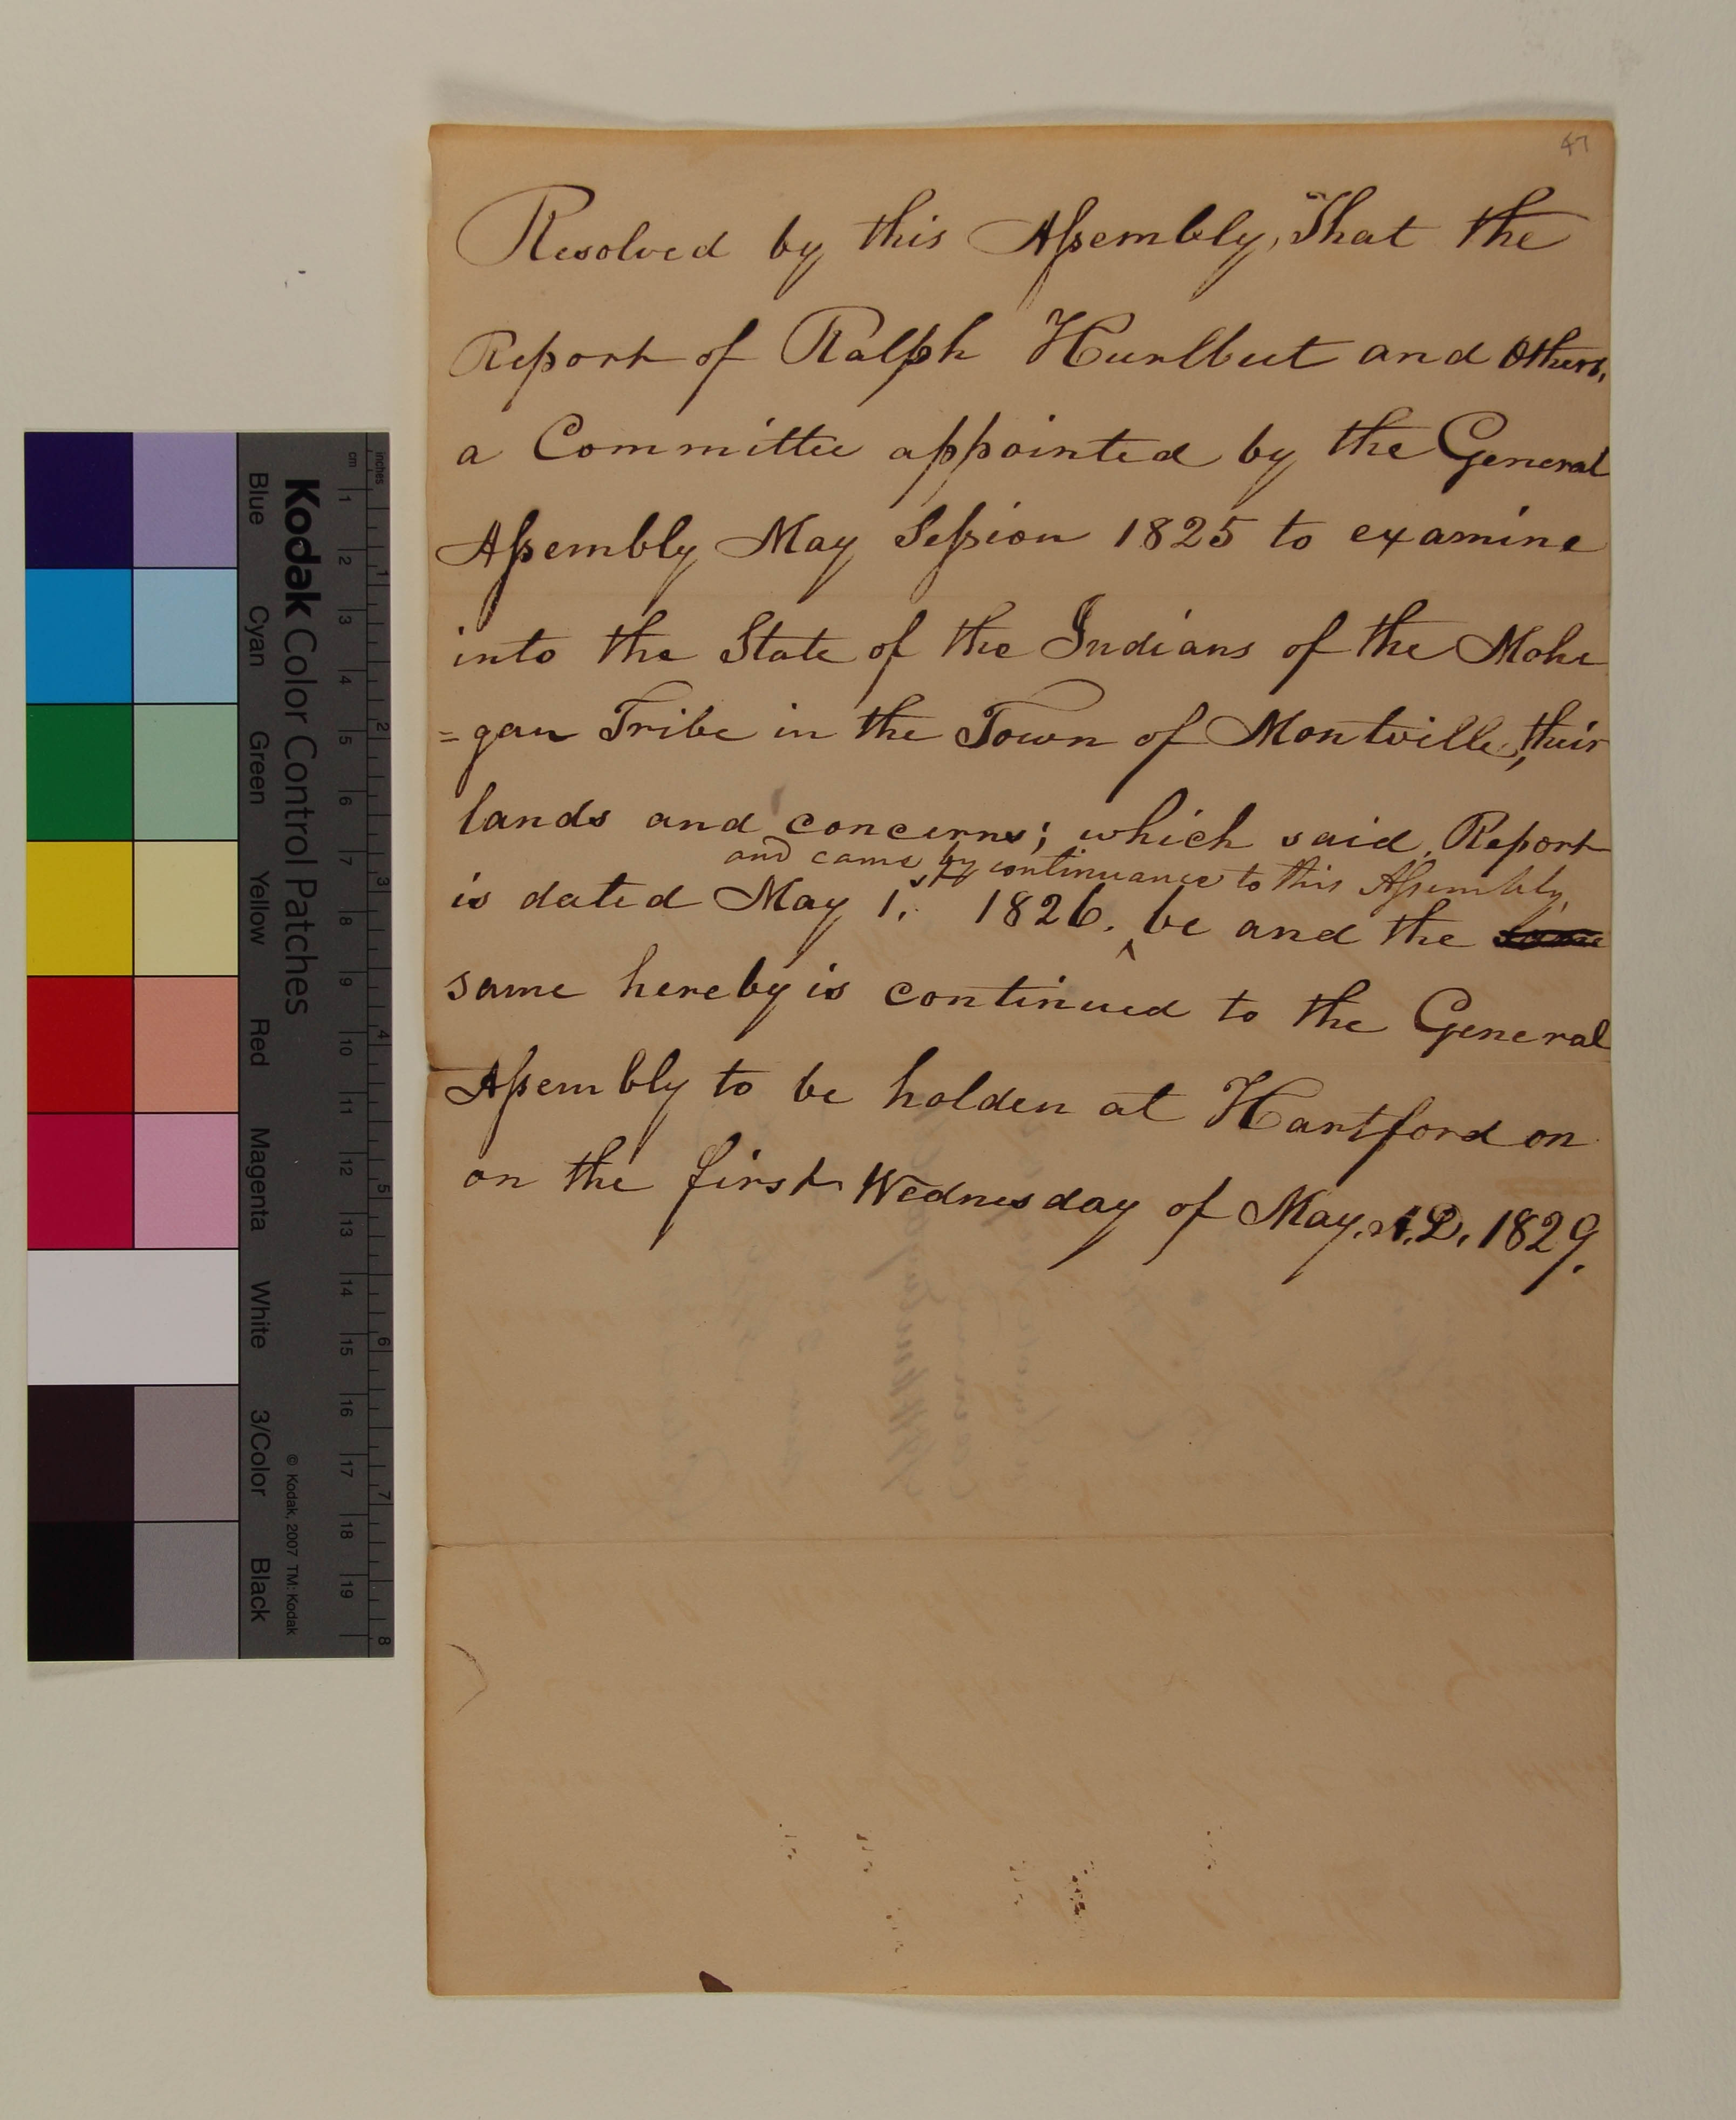 47
Resolved by this Assembly, That the
Report of Ralph Hurlbut and Others,
a Committee appointed by the General
Assembly May Session 1825 to examine
into the State of the Indians of the Mohe
=gan Tribe in the Town of Montville, their
lands and concerns; which said Report
and came by continuance to this Assembly,
is dated May 1.st 1826. ^ be and the same
same hereby is continued to the General
Assembly to be holden at Hartford on
on the first Wednesday of May. A.D. 1829.
Kodak Color Control Patches
Blue Cyan Green Yellow Red Magenta White 3/Color Black
© Kodak, 2007 TM: Kodak
cm 1 2 3 4 5 6 7 8 9 10 11 12 13 14 15 16 17 18 19
inches 1 2 3 4 5 6 7 8